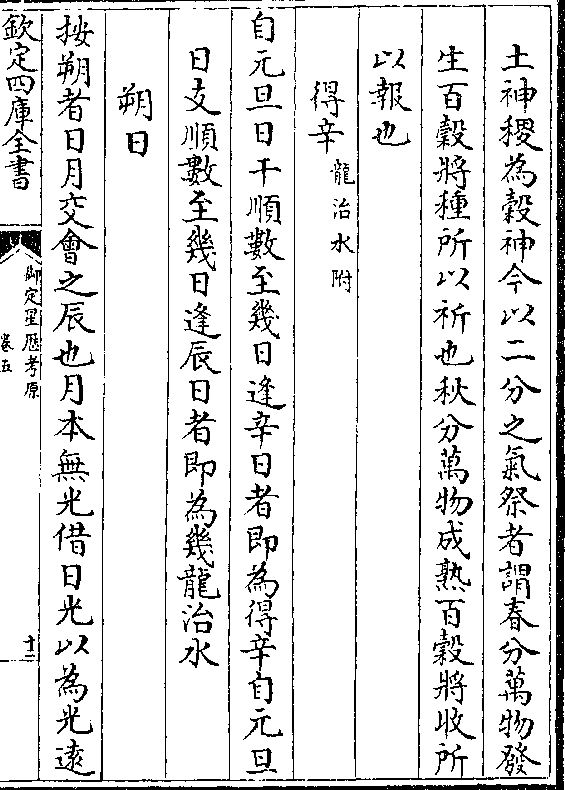 土神稷為穀神今以二分之氣祭者謂春分萬物發
生百穀將種所以祈也秋分萬物成熟百穀將收所
以報也
得辛龍治水附
自元旦日干順數至幾日逢辛日者即為得辛自元旦
日支順數至幾日逢辰日者即為幾龍治水
朔日
按朔者日月交會之辰也月本無光借日光以為光遠
欽定四庫全書
御定星歷考原
卷五
十二